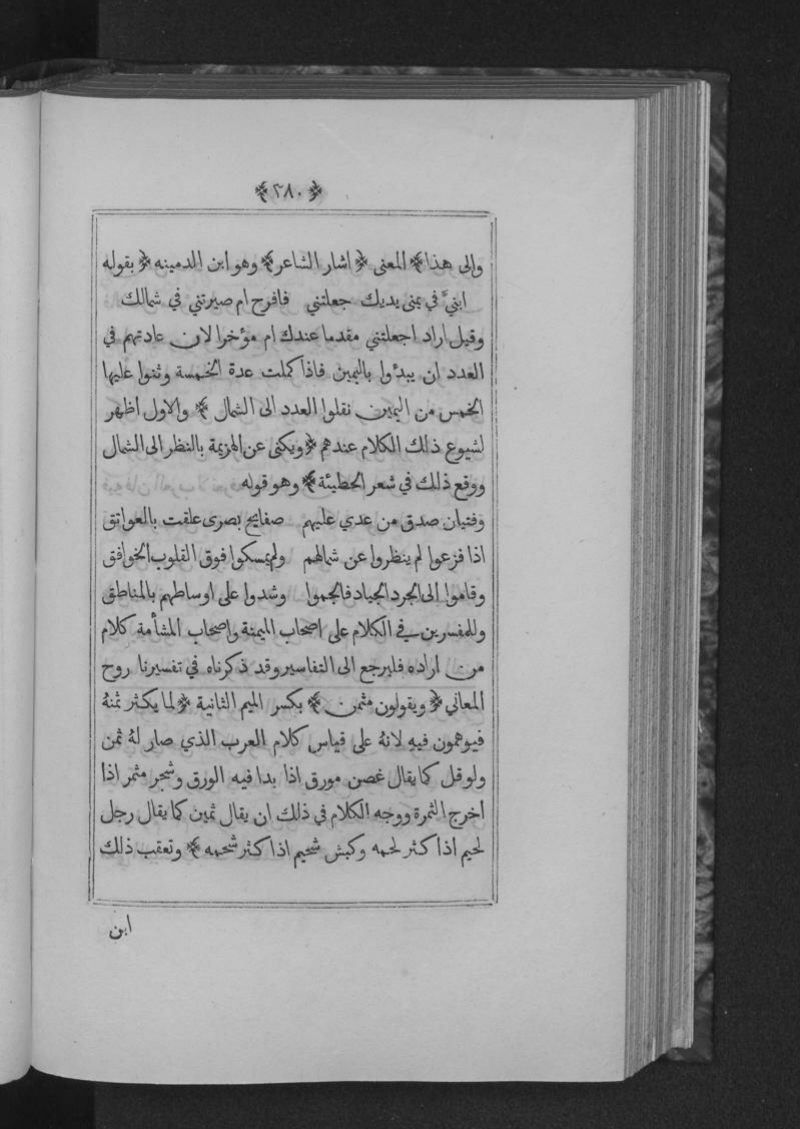 ﴿٢٨٠﴾
والى هذا﴾ المعنى ﴿اشار الشاعر﴾ وهو ابن الدمينه ﴿بقوله
ابنيّ في يمنى يديك جعلتني فافرح ام صيرتني في شمالك
وقيل اراد اجعلتني مقدما عندك ام مؤخرا لان عادتهم في
العدد ان يبدؤا باليمين فاذا كملت عدة الخمسة وثنوا عليها
الخمس من اليمين نقلوا العدد الى الشمال ﴾ والاول اظهر
لشيوع ذلك الكلام عندهم ﴿ويكنى عن الهزيمة بالنظر الى الشمال
ووقع ذلك في شعر الحطيئة﴾ وهو قوله
وفتيان صدق من عدي عليهم صفايح بصرى علقت بالعواتق
اذا فزعوا لم ينظروا عن شمالهم ولم يمسكوا فوق القلوب الخوافق
وقاموا الى الجرد الجياد فالجموا وشدوا على اوساطهم بالمناطق
وللمفسرين في الكلام على اصحاب الميمنة واصحاب المشأمة كلام
من اراده فليرجع الى التفاسير وقد ذكرناه في تفسيرنا روح
المعاني ﴿ويقولون مثمن ﴾ بكسر الميم الثانية ﴿لما يكثر ثمنهُ
فيوهمون فيهِ لانهُ على قياس كلام العرب الذي صار لهُ ثمن
ولو قل كما يقال غصن مورق اذا بدا فيه الورق وشجر مثمر اذا
اخرج الثمرة ووجه الكلام في ذلك ان يقال ثمين كما يقال رجل
لحيم اذا كثر لحمه وكبش شحيم اذا كثر شحمه ﴾ وتعقب ذلك
ابن